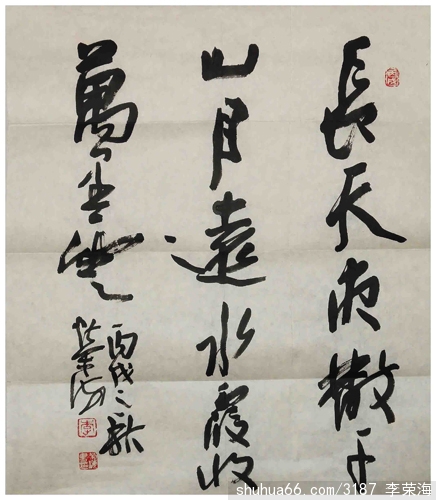 長天夜千
山月遠水霞收
萬里雲
丙戌之秋
榮海
shuhua66.com/3187 李荣海